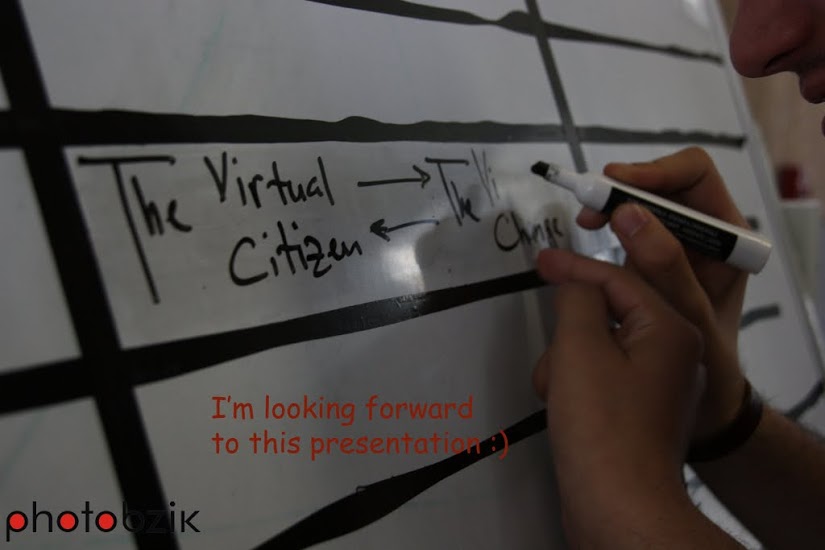 The Virtual → The Vi
Citizen ← Change
I'm looking forward
to this presentation :)
photobzik